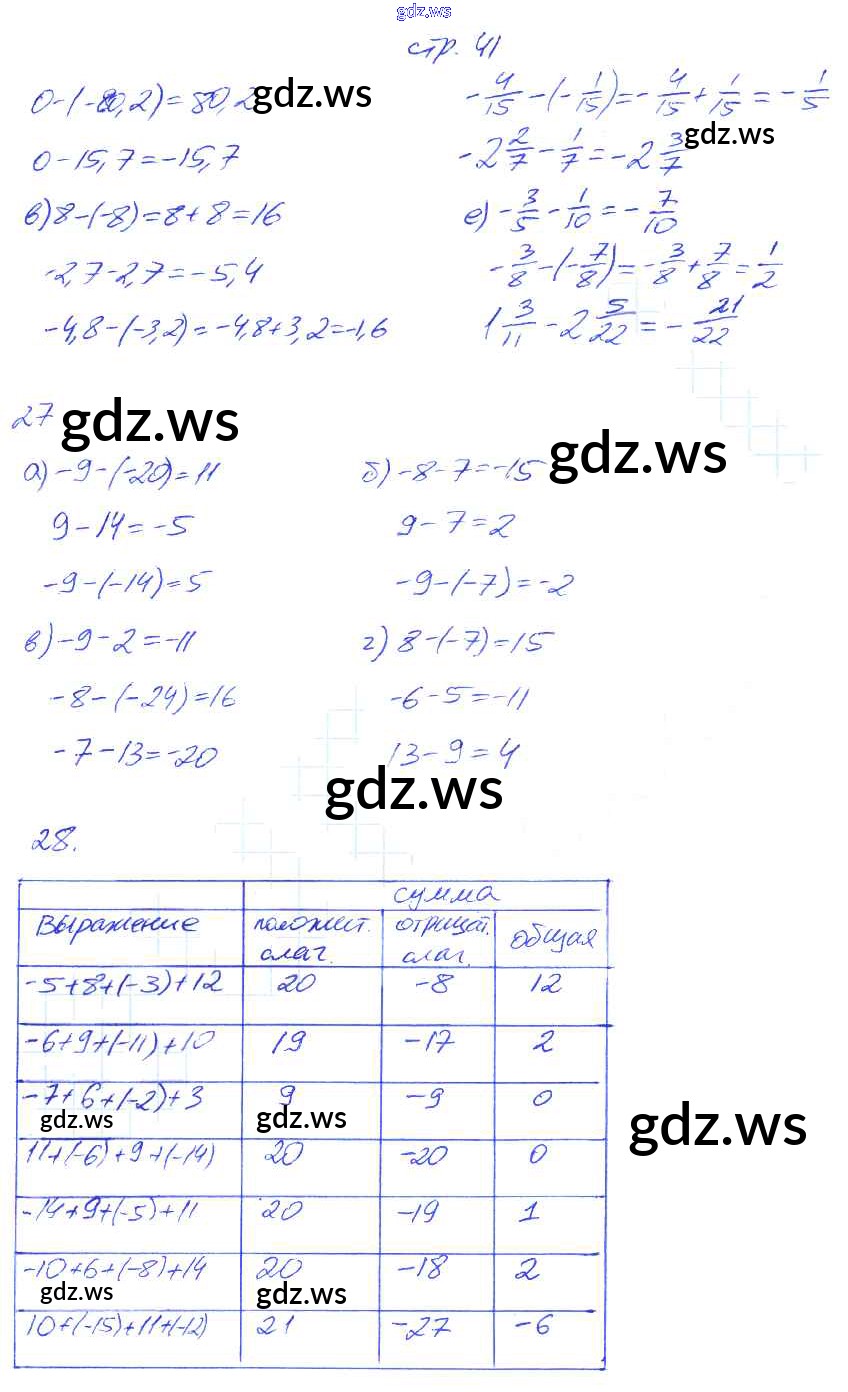 gdz.ws
стр. 41
0-(-80,2)=80,2 gdz.ws
0-15,7=-15,7
в) 8-(-8)=8+8=16
-2,7-2,7=-5,4
-4,8-(-3,2)=-4,8+3,2=-1,6
-4/15-(-1/15)=-4/15+1/15=-1/5
-2 2/7-1/7=-2 3/7 gdz.ws
е) -3/5-1/10=-7/10
-3/8-(-7/8)=-3/8+7/8=1/2
1 3/11-2 5/22=-21/22
27 gdz.ws
gdz.ws
а) -9-(-20)=11
9-14=-5
-9-(-14)=5
б) -8-7=-15
9-7=2
-9-(-7)=-2
в) -9-2=-11
-8-(-24)=16
-7-13=-20
г) 8-(-7)=15
-6-5=-11
13-9=4
gdz.ws
28.
сумма
Выражение положит. слаг. отрицат. слаг. общая
-5+8+(-3)+12 20 -8 12
-6+9+(-11)+10 19 -17 2
-7+6+(-2)+3 9 -9 0
gdz.ws gdz.ws gdz.ws
11+(-6)+9+(-14) 20 -20 0
-14+9+(-5)+11 20 -19 1
-10+6+(-8)+14 20 -18 2
gdz.ws gdz.ws
10+(-15)+11+(-12) 21 -27 -6